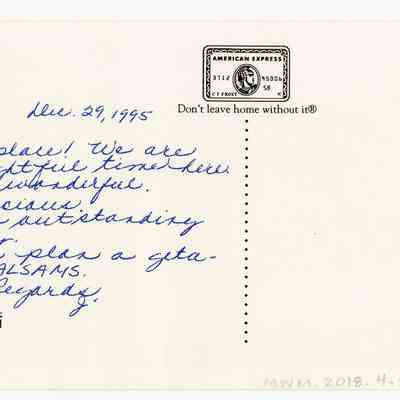 AMERICAN EXPRESS
3712 95006
58
C F FROST
Don't leave home without it®
Dec. 29, 1995
place! We are
time here.
wonderful.
outstanding
plan a geta-
ALSAMS.
Regards,
MWM. 2018. 4.